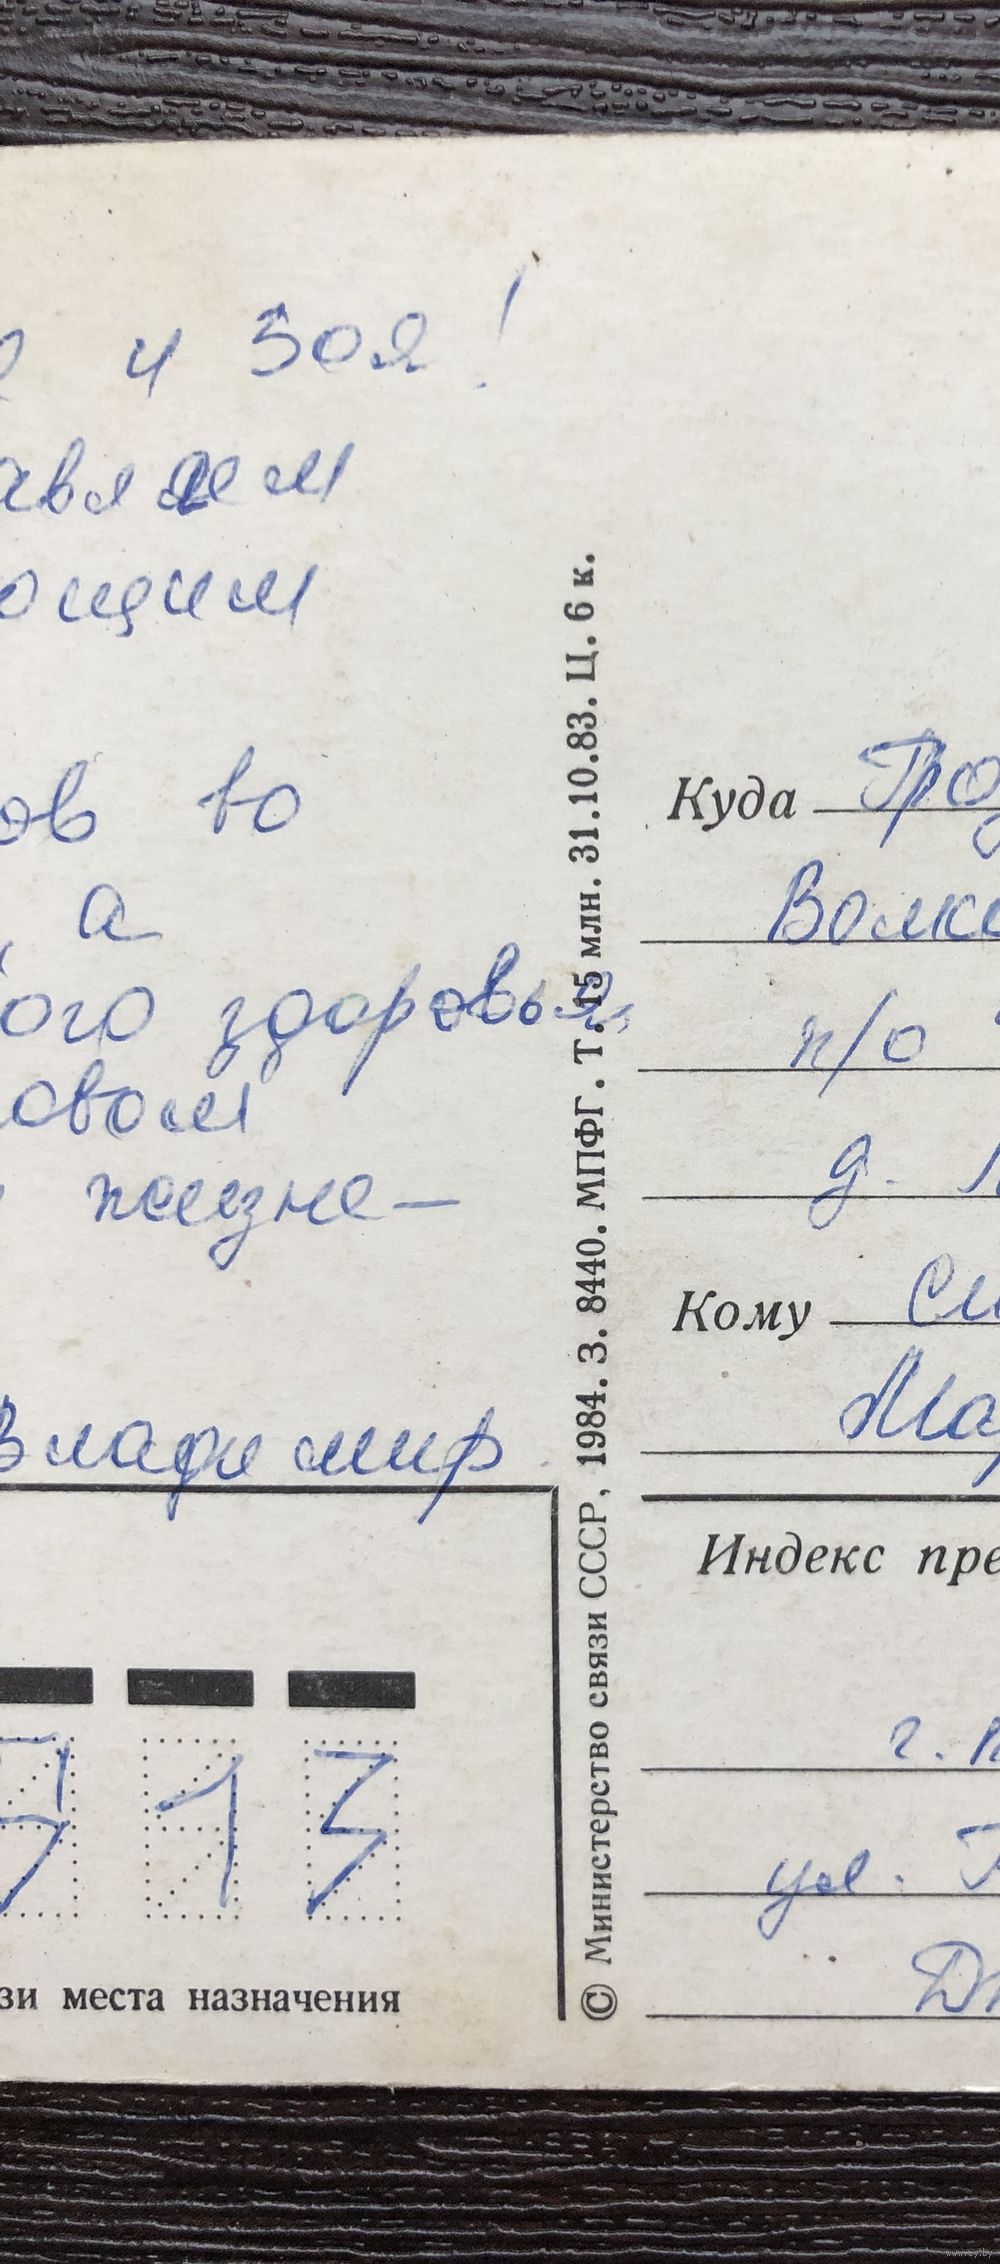 и Зоя!
авляем
ощим
ов во
, а
ого здоровья,
овом
жизне—
Владимир
913
зи места назначения
© Министерство связи СССР, 1984. З. 8440. МПФГ. Т. 15 млн. 31.10.83. Ц. 6 к.
Куда Грод
Волко
п/о
д.
Кому Си
Мар
Индекс пре
г.
ул.
www.ay.by